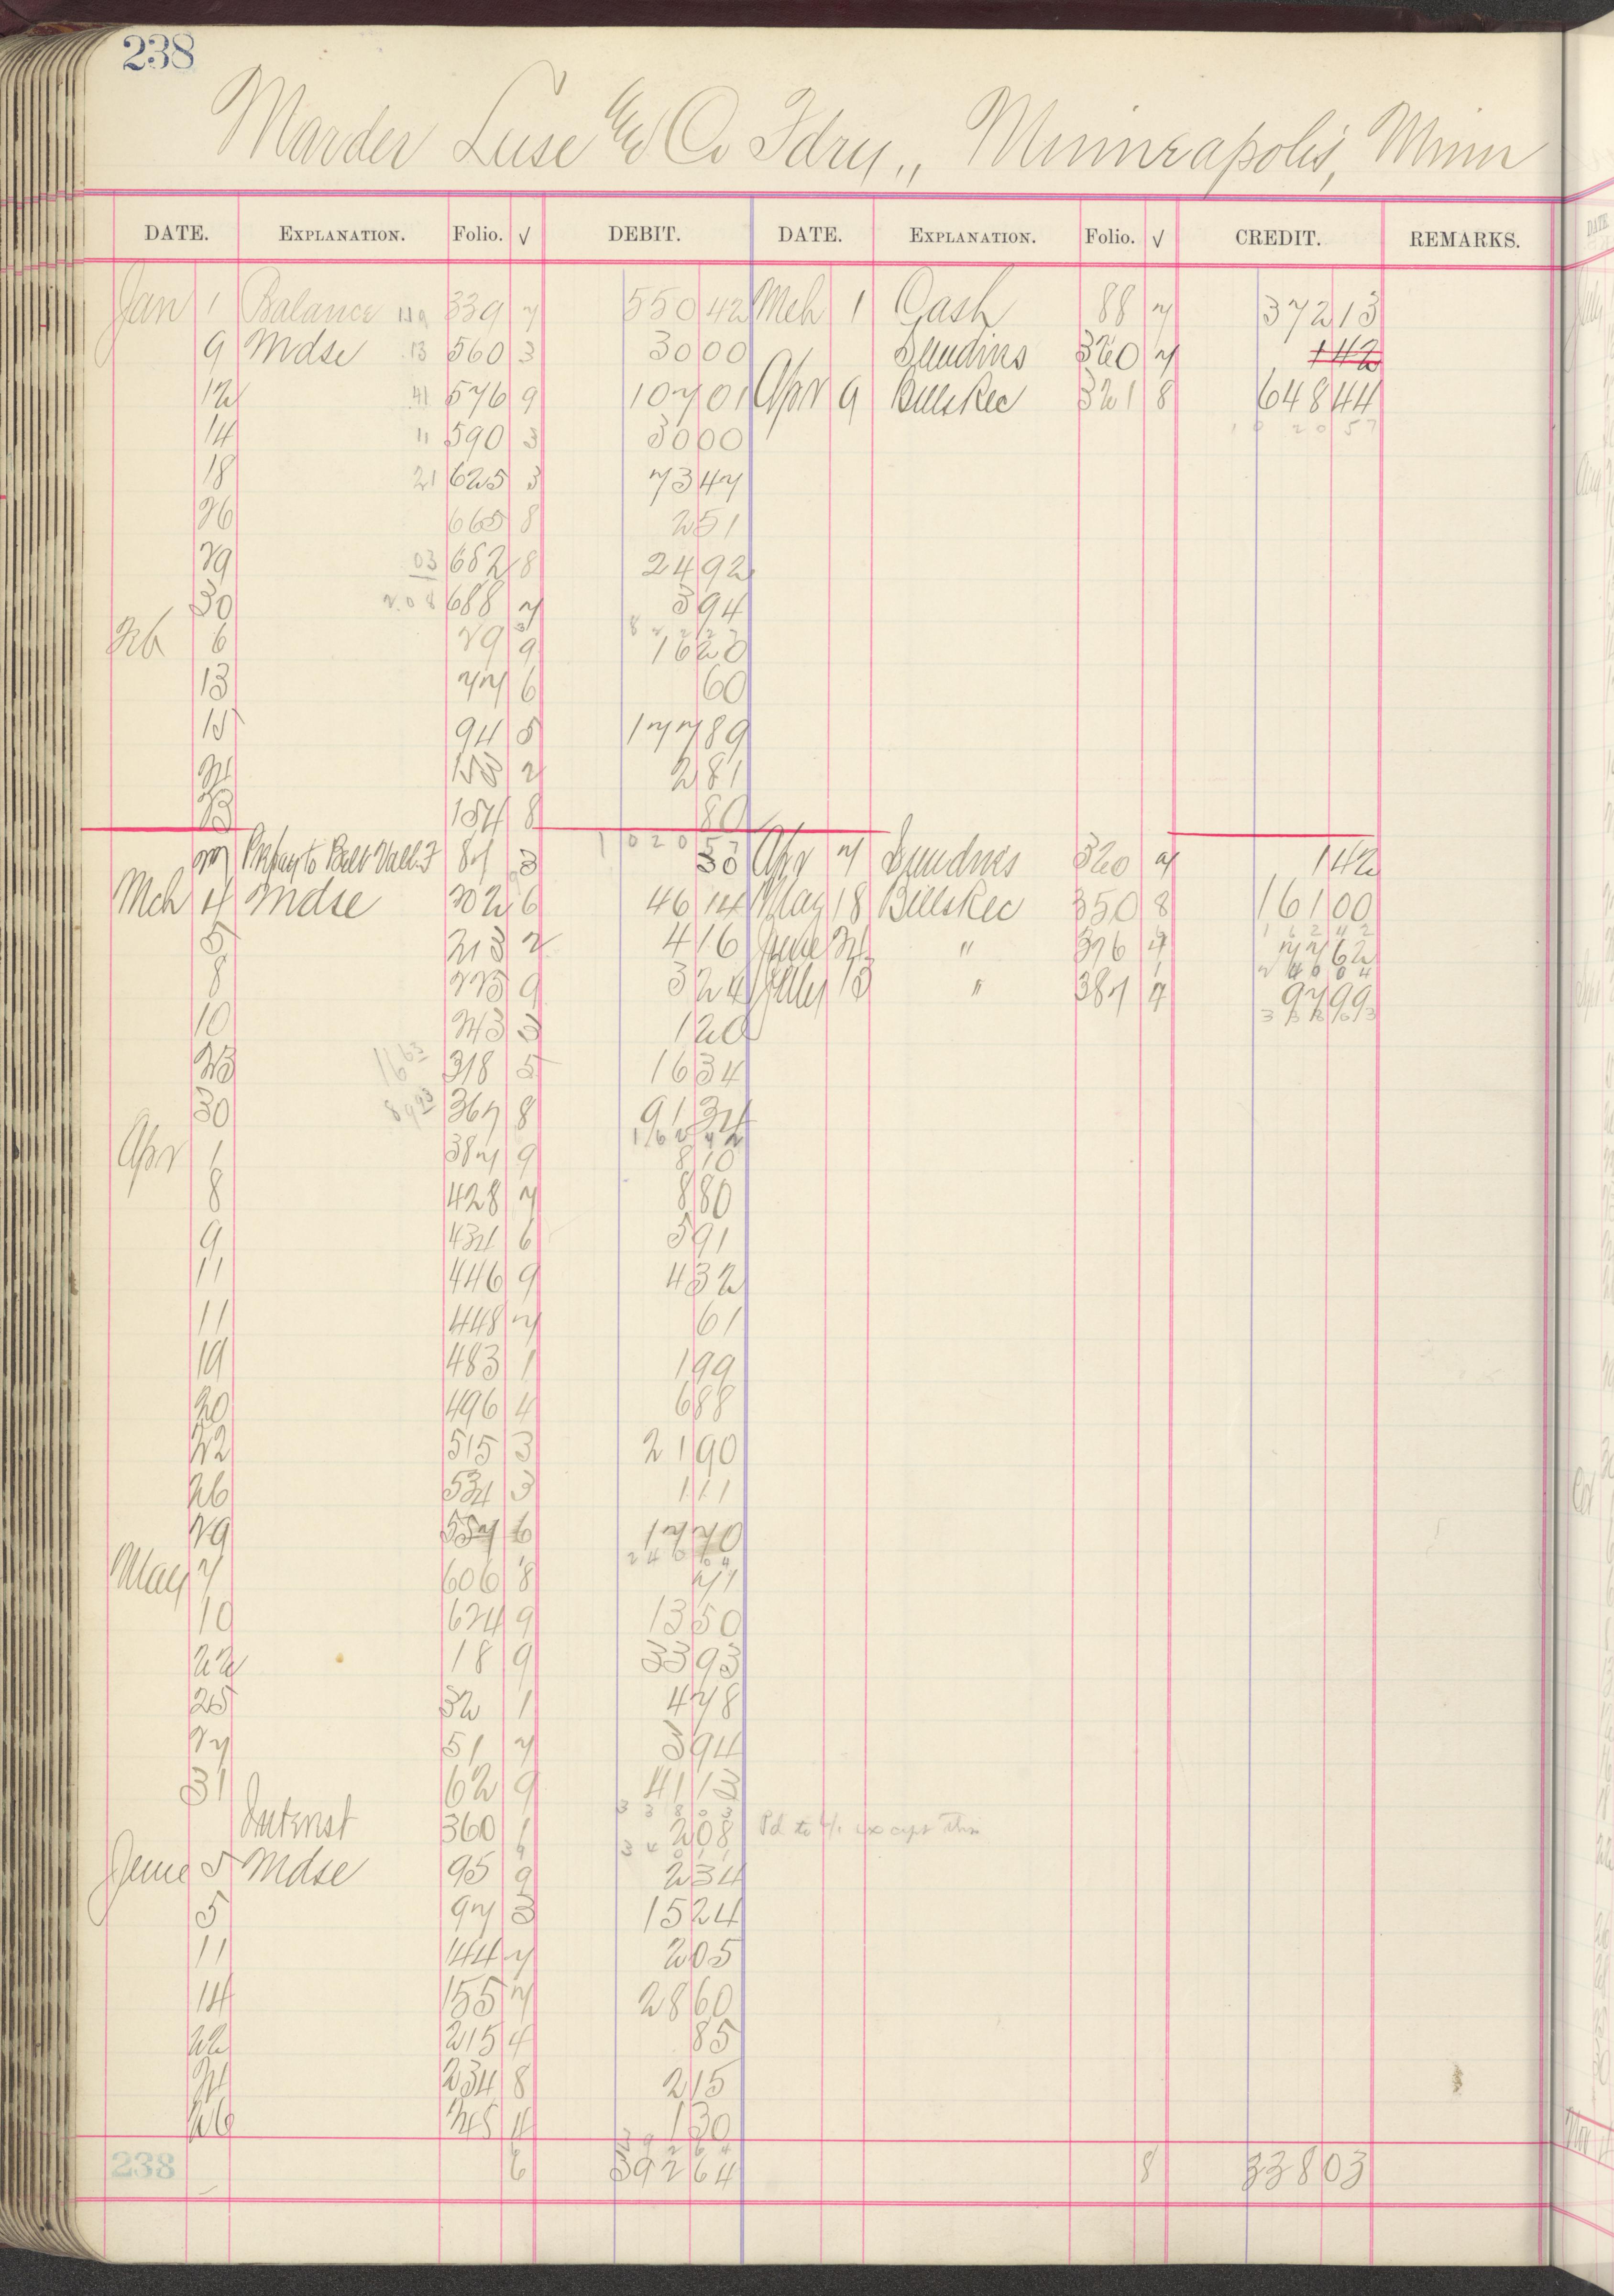 238
Marder Luse & Co Fdry,, Minneapolis, Minn
DATE. EXPLANATION. Folio. √ DEBIT. DATE. EXPLANATION. Folio. √ CREDIT. REMARKS.
Jan 1 Balance 339 7 550 42 Mch 1 Cash 88 7 372 13
9 Mdse 13 560 3 30 00 Sundries 320 7 1 42
12 41 576 9 107 01 Apr 9 Bills Rec 321 8 648 44
14 11 590 3 30 00 1 0 2 0 5 7
18 21 625 3 73 47
26 665 8 2 51
29 03 682 8 24 92
30 2.08 688 7 3 94
Feb 6 29 9 16 20
13 77 6 60
15 94 5 177 89
24 153 2 2 81
28 184 8 80
1 0 2 0 5 7
27 87 3 30 Apr 7 Sundries 320 7 1 42
Mch 4 Mdse 202 6 46 14 May 18 Bills Rec 350 8 161 00
5 213 2 4 16 June 24 " 376 7 77 62
8 225 9 3 24 July 13 " 387 7 97 99
10 243 3 1 20
23 16 63 318 5 16 34
30 367 8 91 34
Apr 1 387 9 8 10
8 428 7 8 80
9 434 6 3 91
11 446 9 4 32
11 448 7 61
19 483 1 1 99
20 496 4 6 88
22 515 3 21 90
26 534 3 1 11
29 557 6 17 70
May 7 606 8 71
10 624 9 13 50
22 18 9 33 93
25 32 1 4 78
27 51 7 3 94
31 62 9 41 13
3 3 8 0 3
Interest 360 1 2 08 Pd to 6/1 except this
June 5 Mdse 95 9 2 34
5 97 3 15 24
11 144 7 2 05
14 155 7 28 60
22 215 4 85
24 234 8 2 15
26 245 4 1 30
238 6 392 64 8 338 03